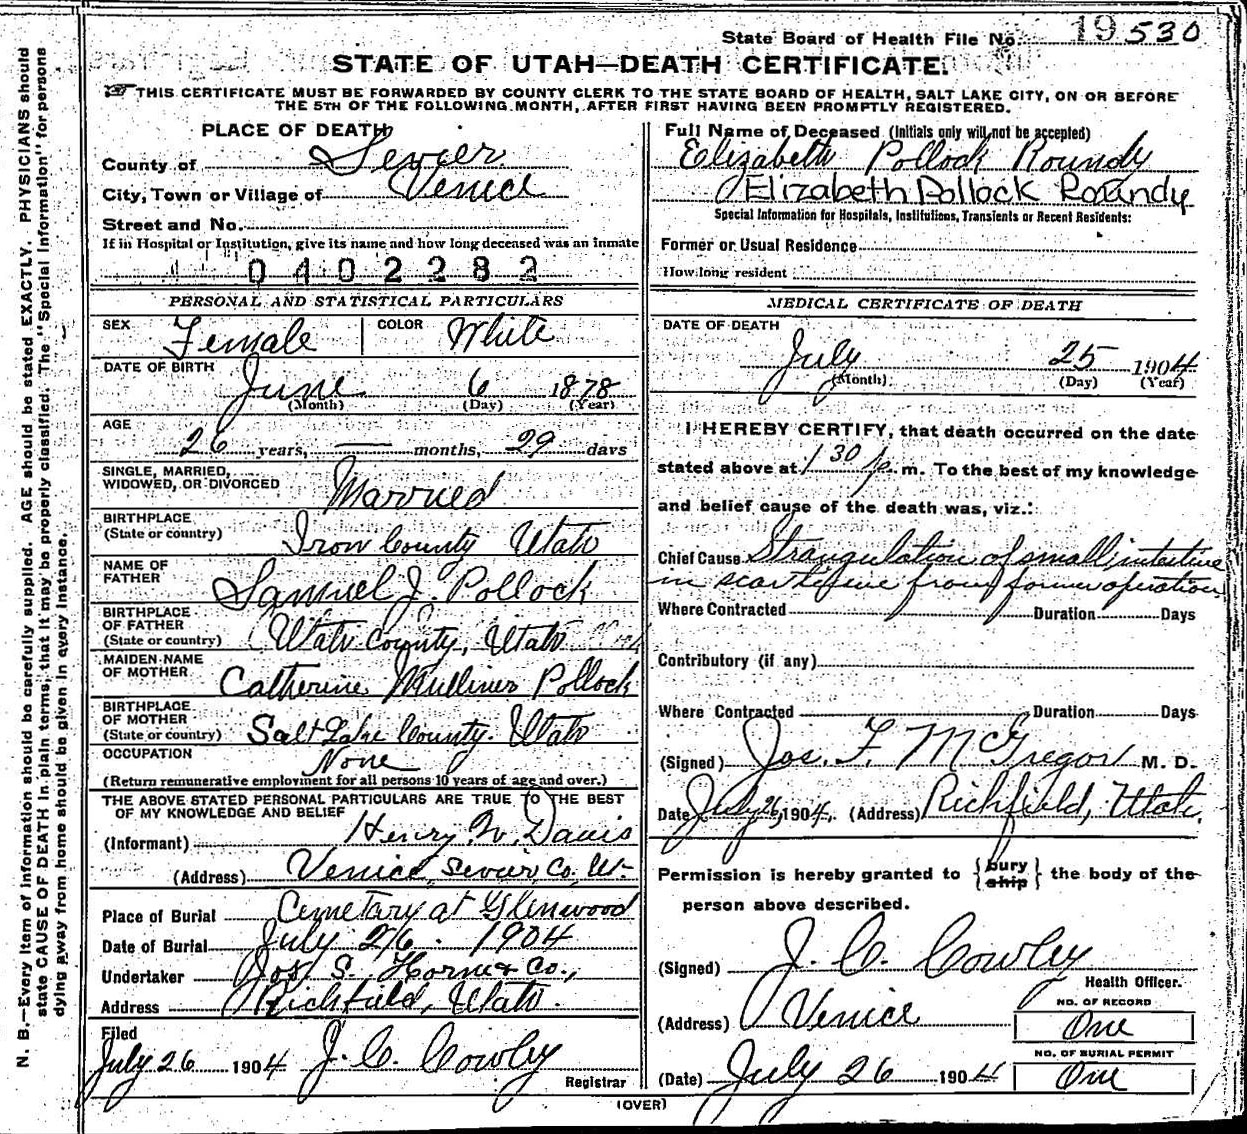 State Board of Health File No. 19 530
STATE OF UTAH—DEATH CERTIFICATE.
THIS CERTIFICATE MUST BE FORWARDED BY COUNTY CLERK TO THE STATE BOARD OF HEALTH, SALT LAKE CITY, ON OR BEFORE
THE 5TH OF THE FOLLOWING MONTH, AFTER FIRST HAVING BEEN PROMPTLY REGISTERED.
N. B.—Every item of information should be carefully supplied. AGE should be stated EXACTLY. PHYSICIANS should
state CAUSE OF DEATH in plain terms, that it may be properly classified. The "Special Information" for persons
dying away from home should be given in every instance.
PLACE OF DEATH
County of Sevier
City, Town or Village of Venice
Street and No.
If in Hospital or Institution, give its name and how long deceased was an inmate
0402282
PERSONAL AND STATISTICAL PARTICULARS
SEX Female COLOR White
DATE OF BIRTH June 6 1878
(Month) (Day) (Year)
AGE
26 years, — months, 29 days
SINGLE, MARRIED,
WIDOWED, OR DIVORCED Married
BIRTHPLACE
(State or country) Iron County Utah
NAME OF
FATHER Samuel J. Pollock
BIRTHPLACE
OF FATHER
(State or country) Utah County, Utah
MAIDEN NAME
OF MOTHER Catherine Mulliner Pollock
BIRTHPLACE
OF MOTHER
(State or country) Salt Lake County. Utah
OCCUPATION None
(Return remunerative employment for all persons 10 years of age and over.)
THE ABOVE STATED PERSONAL PARTICULARS ARE TRUE TO THE BEST
OF MY KNOWLEDGE AND BELIEF
(Informant) Henry W. Davis
(Address) Venice, Sevier, Co. Ut.
Place of Burial Cemetary at Glenwood
Date of Burial July 26. 1904
Undertaker Jos. S. Horne & Co.,
Address Richfield, Utah.
Filed
July 26 1904 J. C. Cowley
Registrar
Full Name of Deceased (Initials only will not be accepted)
Elizabeth Pollock Roundy
Elizabeth Pollock Roundy
Special Information for Hospitals, Institutions, Transients or Recent Residents:
Former or Usual Residence
How long resident
MEDICAL CERTIFICATE OF DEATH
DATE OF DEATH
July 25 1904
(Month) (Day) (Year)
I HEREBY CERTIFY, that death occurred on the date
stated above at 1 30 p. m. To the best of my knowledge
and belief cause of the death was, viz.:
Chief Cause Strangulation of small intestine
in scar tissue from former operation
Where Contracted Duration Days
Contributory (if any)
Where Contracted Duration Days
(Signed) Jos. F. McGregor M. D.
Date July 26, 1904, (Address) Richfield, Utah.
Permission is hereby granted to {bury ship} the body of the
person above described.
(Signed) J. C. Cowley
Health Officer.
NO. OF RECORD
(Address) Venice One
NO. OF BURIAL PERMIT
(Date) July 26 1904 One
(OVER)